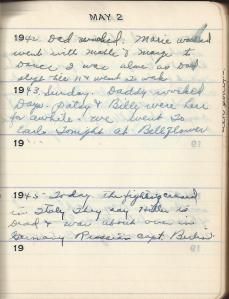 MAY 2
1942 Dad worked. Marie worked
went with Mable & Marge to
Dance I was alone as Dad
slept till & went to work
1943. Sunday. Daddy worked
Days. Patsy & Billy were here
for awhile. we went to
Earls Tonight at Bellflower
19
1945 Today the fighting ceased
in Italy They say Hitler is
Dead & war about over in
Germany Russian capt. Berlin
19